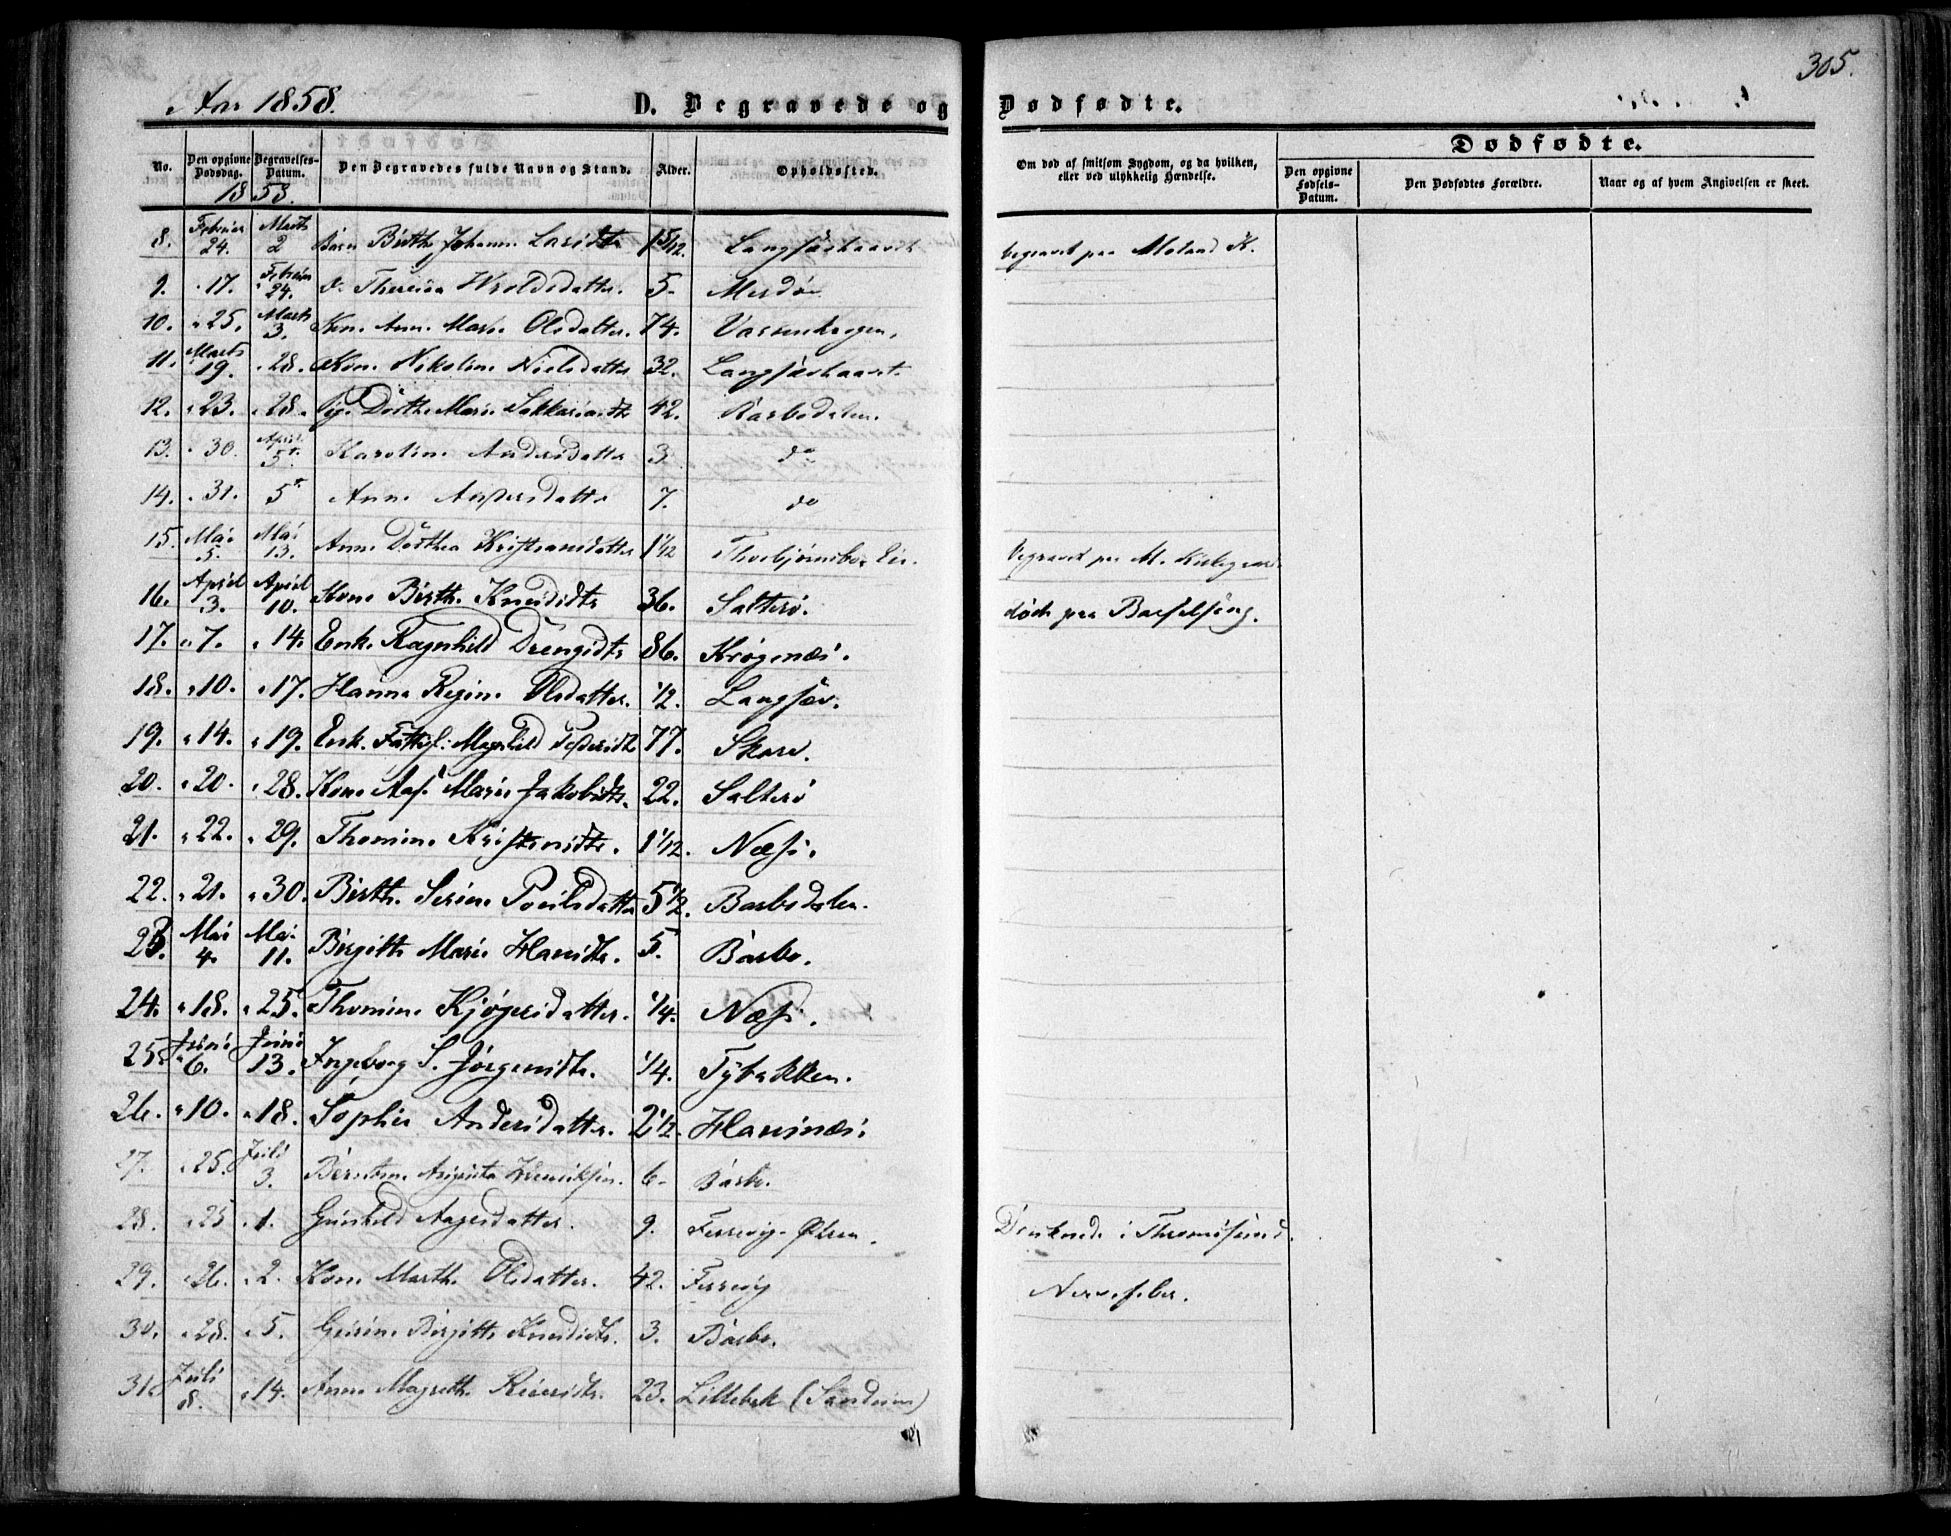 305.
Aar 1858.
D. Begravede og Dødfødte.
No.
Den opgivne Dødsdag.
Begravelses-Datum.
Den Begravedes fulde Navn og Stand.
Alder.
Opholdssted.
Om død af smitsom Sygdom, og da hvilken, eller ved ulykkelig Hændelse.
Dødfødte.
Den opgivne Fødsels-Datum.
Den Dødfødtes Forældre.
Naar og af hvem Angivelsen er skeet.
1858.
8. Februar 24. Marts 2 Barn Birthe Johanne Larsdtr 1 5/12. begravet paa Moland K.
9. " 17. Februar 24. do 5. Merdø
10. " 25. Marts 3. Kone Anne Marie Olsdatter. 74.
11. Marts 19. " 28. Kone Nikoline Nielsdatter 32.
12. " 23. " 28. Pige Dorthe Marie 42. Barbodalen.
13. " 30. April 5. Karoline Andersdatter 3 do
14. " 31. 5 Anne 7. do
15. Mai 5. Mai 13. Anne Dorthea Kristiansdatter 1 1/12 Thorbjørnsbo Eie. Begravet paa M. Kirkegaard
16. April 3. April 10. Kone Birthe Knudsdtr 36. Salterø. død paa Barselseng.
17. " 7. " 14. Enke Ragnhild Drengsdtr 86. Krøgenæs.
18. " 10. " 17. Hanna Regine Olsdatter. 1/2. Langsæv.
19. " 14. " 19. Enke Fattigl: Magnhild 77. Skare.
20. " 20. " 28. Kone Aase Marie Jakobsdtr. 22. Salterø
21. " 22. " 29. Thomine Kristensdtr. 1 1/12. Næs.
22. " 21. " 30. Birthe Serine Poulsdatter 5 1/2. Barbodalen.
23. Mai 4. Mai 11. Birgitte Marie Hansdtr. 5. Barbo.
24. " 18. " 25. Thomine 1/4. Næs.
25. Juni 6. Juni 13. Ingeborg S. Jørgensdtr. 1/4. Tybakken.
26. " 10. " 18. Sophie Andersdatter. 2 1/2. Havsnæs.
27. " 25. Juli 3. Berntine Henriksen. 6. Barbo.
28. " 25 " 1. Gunhild Aagesdatter. 9. Færevig Øhren. Druknede i Thromøsund.
29. " 26. " 2. Kone Marthe Olsdatter. 42. Færevig Nervefeber.
30. " 28. " 5. Gurine Birgitte Knudsdtr. 3. Barbo.
31. Juli 8. " 14. Anne Magrethe 23. Lillebek (Sandum)